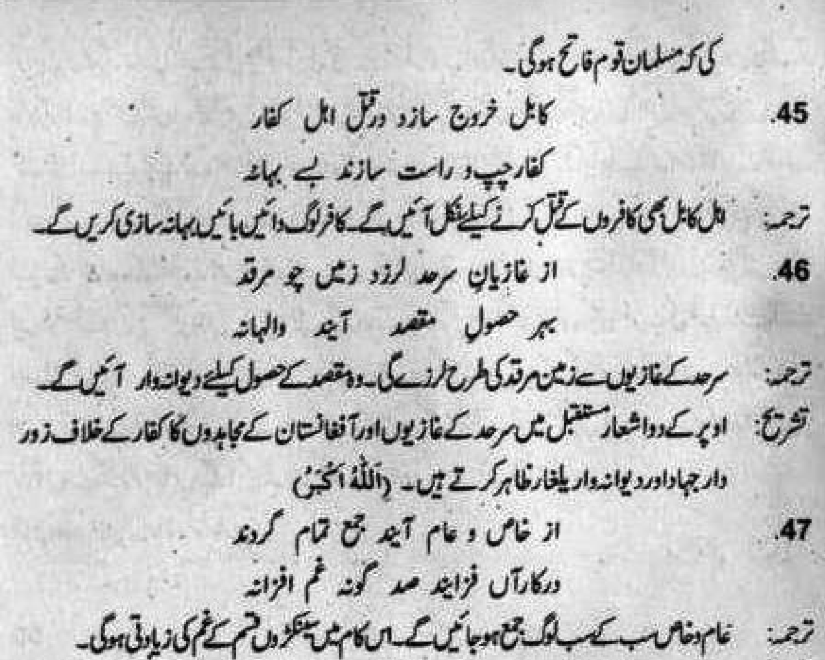 کی کہ مسلمان قوم فاتح ہوگی۔
45. کابل خروج سازد در قتل اہل کفار
کفار چپ و راست سازند بے بہانہ
ترجمہ: اہل کابل بھی کافروں کے قتل کرنے کیلئے نکل آئیں گے۔ کافر لوگ دائیں بائیں بہانہ سازی کریں گے۔
46. از غازیانِ سرحد لرزد زمیں چو مرقد
بہر حصولِ مقصد آیند والہانہ
ترجمہ: سرحد کے غازیوں سے زمین مرقد کی طرح لرزے گی۔ وہ مقصد کے حصول کیلئے دیوانہ وار آئیں گے۔
تشریح: اوپر کے دو اشعار مستقبل میں سرحد کے غازیوں اور آفغانستان کے مجاہدوں کا کفار کے خلاف زور
دار جہاد اور دیوانہ وار یلغار ظاہر کرتے ہیں۔ (اَللّٰہُ اَکْبَرُ)
47. از خاص و عام آیند جمع تمام گردند
درکار آں فزایند صد گونہ غم افزانہ
ترجمہ: عام و خاص سب کے سب لوگ جمع ہو جائیں گے۔ اس کام میں سینکڑوں قسم کے غم کی زیادتی ہوگی۔